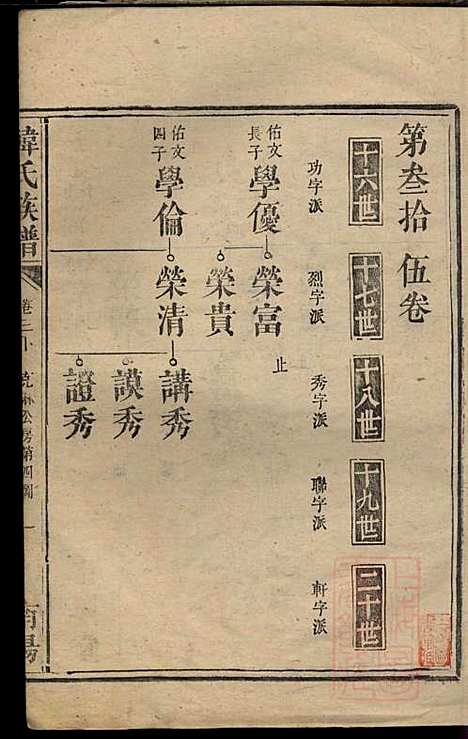 第叁拾伍卷
十六世
十七世
十八世
十九世
二十世
功字派
烈字派
秀字派
聯字派
軒字派
佑文長子
學優
榮富
止
榮貴
佑文四子
學倫
榮清
講秀
謨秀
證秀
氏族譜
卷三十
公房第四